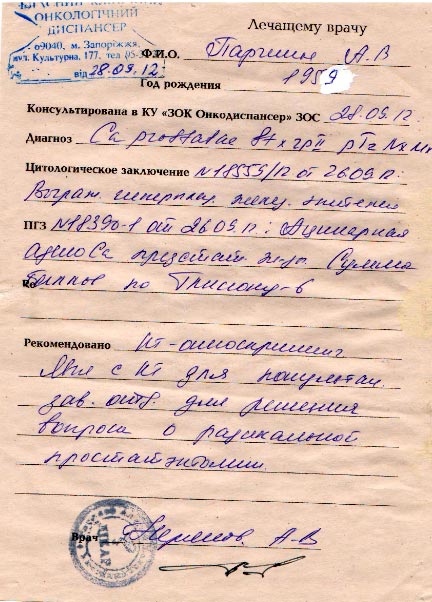 ОНКОЛОГІЧНИЙ
ДИСПАНСЕР
69040, м. Запоріжжя,
вул. Культурна, 177, тел.
від 28.09.12
Лечащему врачу
Ф.И.О. Паршин А. В
Год рождения 1959
Консультирована в КУ «ЗОК Онкодиспансер» ЗОС 28.09.12.
Диагноз Ca prostatae St х гр II pT2 Nx Mx
Цитологическое заключение N18559/12 от 26.09.12:
желез. эпителия
ПГЗ N18390-1 от 26.09.12: Ацинарная
аденоCa предстат. ж-зы. Сумма
баллов по Глисону-6
Рекомендовано КТ-онкоскрининг
Явка с КТ для консультац.
зав. отд. для решения
вопроса о радикальной
простатэктомии
Врач А. В